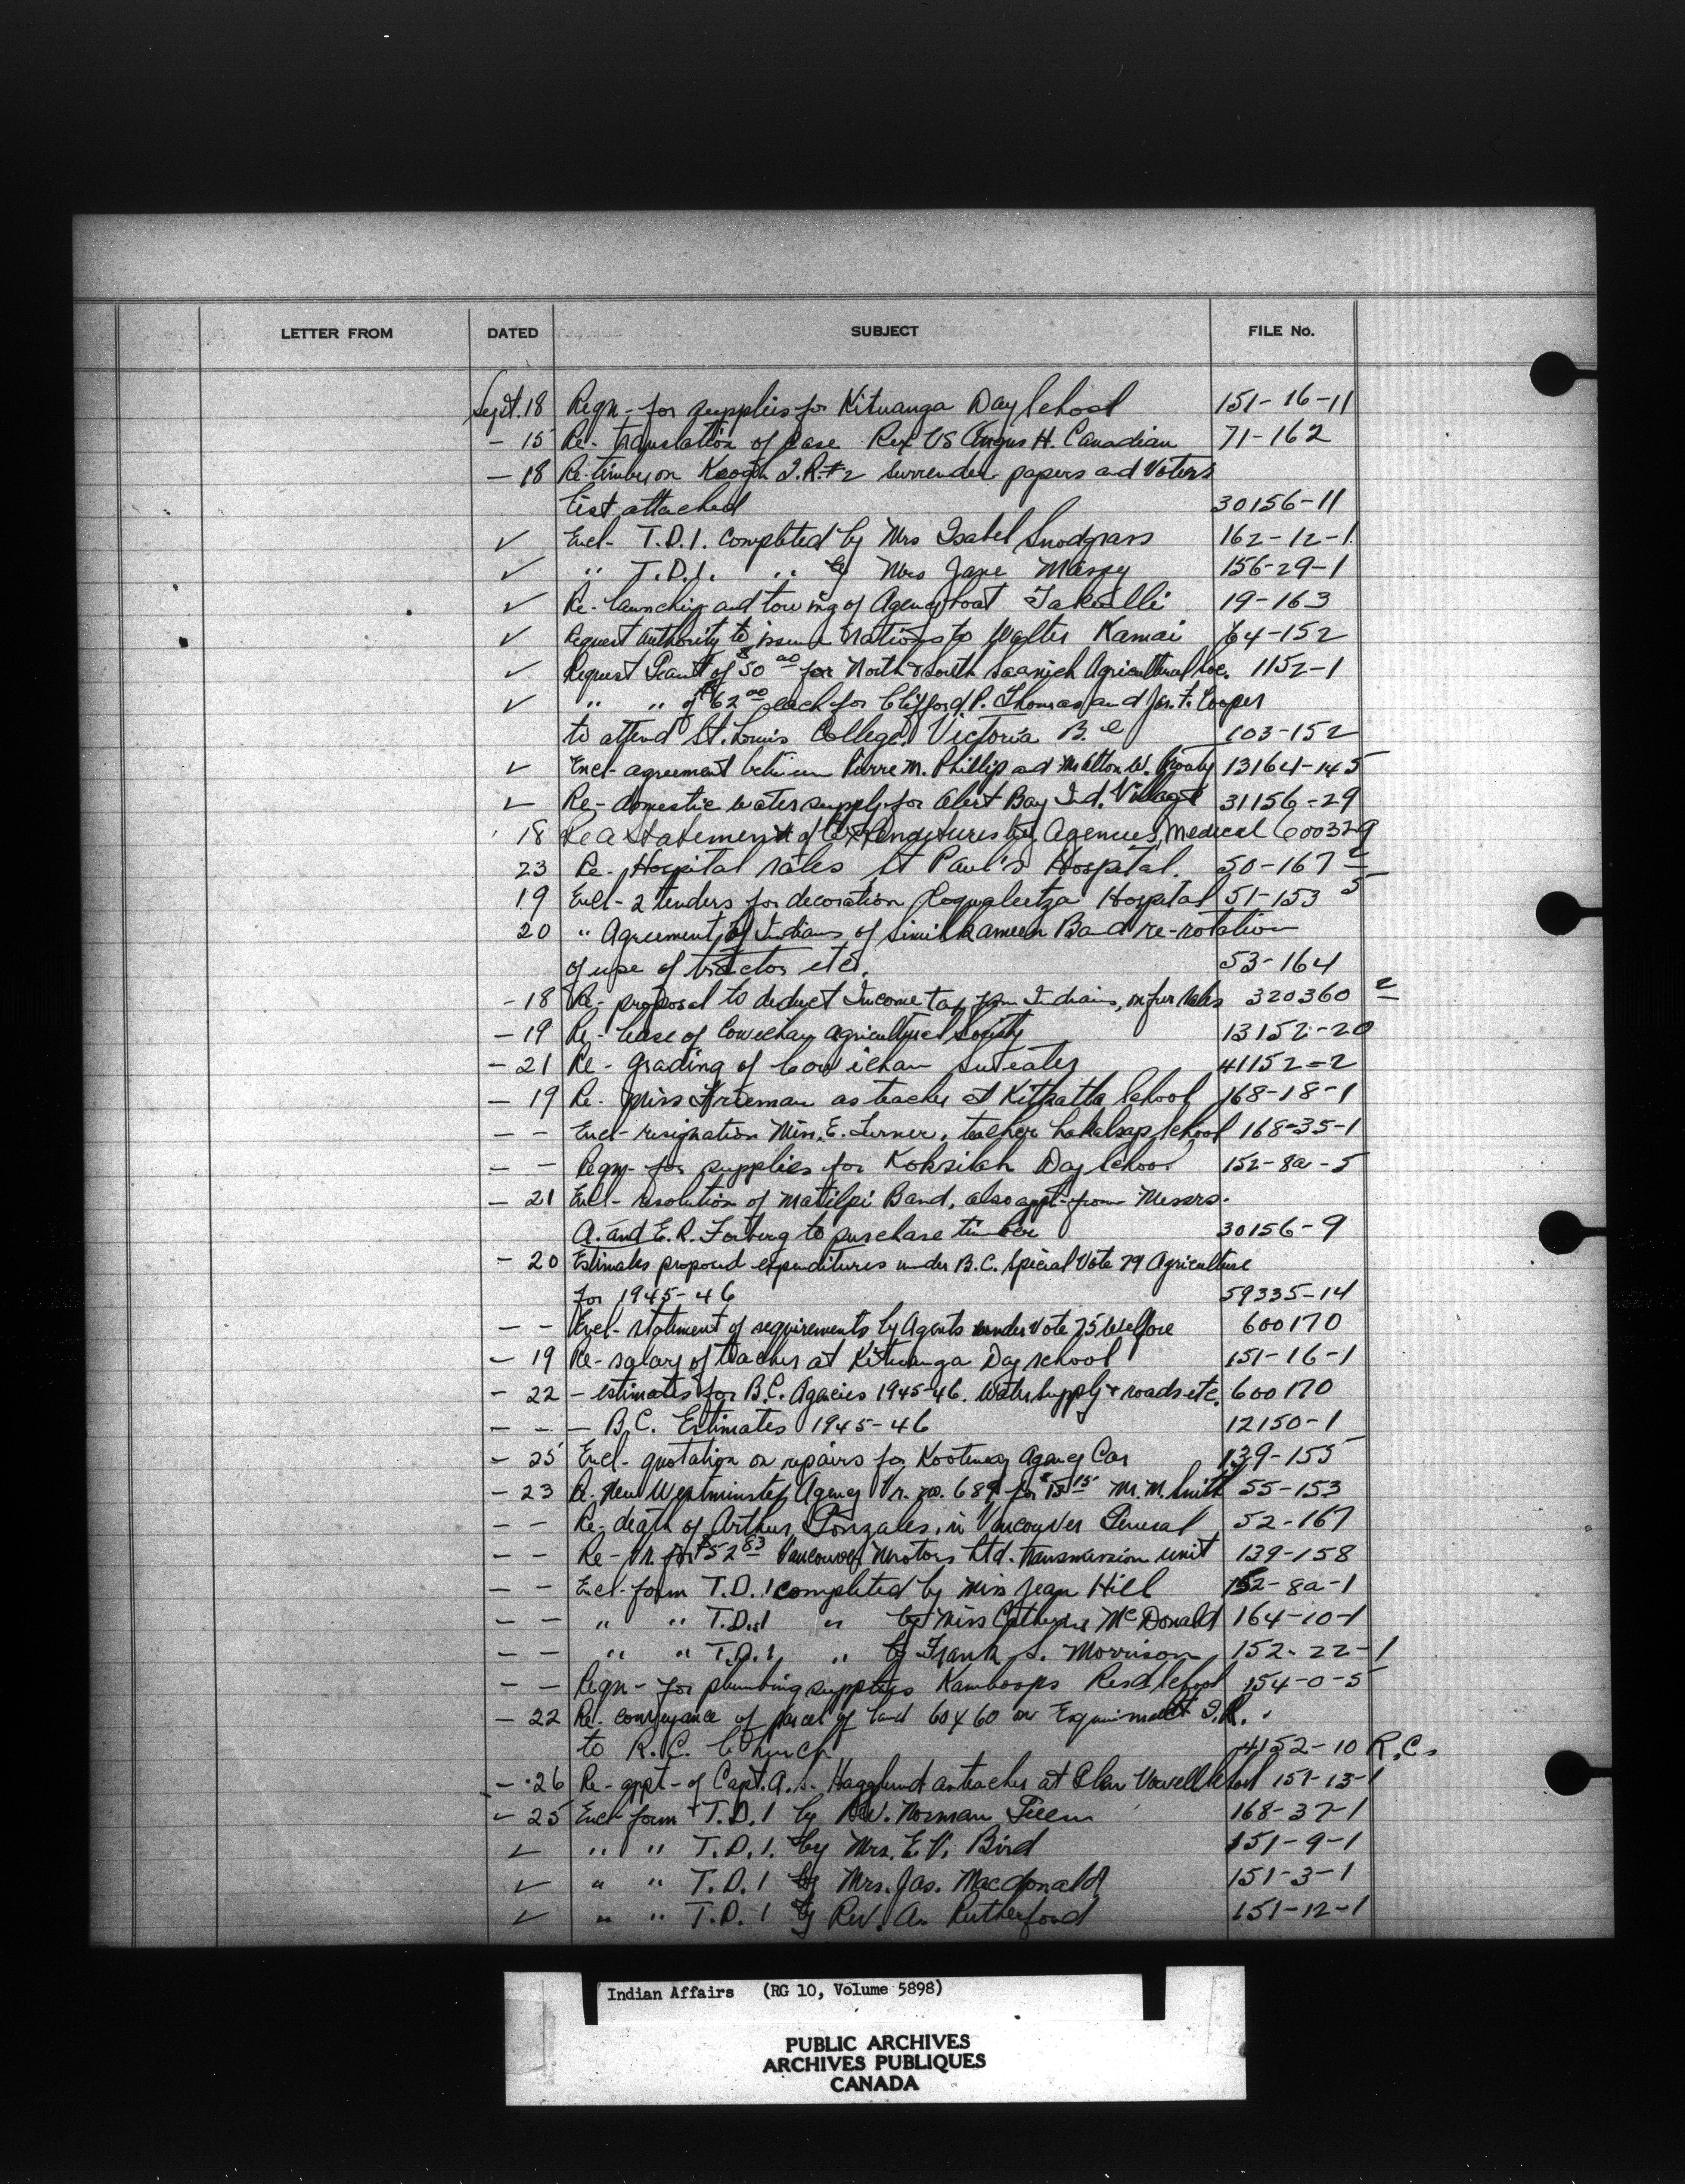 LETTER FROM DATED SUBJECT FILE No.
Sept. 18 Reqn - for supplies for Kitwanga Day School 151-16-11
- 15 Re - translation of case Rex VS Angus H. Canadian 71-162
- 18 Re - timber on Keogh I.R. #2 surrender papers and Voters
list attached 30156-11
✓ Encl - T.D.1. completed by Mrs Isabel Snodgrass 162-12-1
✓ " T.D.1. " by Mrs Jane Massey 156-29-1
✓ Re - launching and towing of Agency boat Takulli 19-163
✓ Request authority to issue rations to Walter Kamai 64-152
✓ Request Grant of $50 00 for North & South Saanich Agricultural Soc. 1152-1
✓ " " of $62 00 each for Clifford P. Thomas and Jas. F. Cooper
to attend St. Louis College, Victoria B.C 103-152
✓ Encl - agreement between Pierre M. Phillip and Milton W. 13164-145
✓ Re - domestic water supply for Alert Bay Ind. Village 31156-29
18 Re a Statement of Expenditures by Agencies, Medical 600329
23 Re - Hospital rates St Paul's Hospital. 50-167
19 Encl - 2 tenders for decoration Coqualeetza Hospital 51-153 5
20 " Agreement of Indians of Similkameen Band re - rotation
of use of tractor etc. 53-164
- 18 Re - proposal to deduct Income tax from Indians, on fur sales 320360 2
- 19 Re - lease of Cowichan Agricultural Society 13152-20
- 21 Re - grading of Cowichan sweaters 41152-2
- 19 Re - Miss Frieman as teacher at Kitkatla School 168-18-1
- - Encl - resignation Miss. E. Turner, teacher Lakalsap School 168-35-1
- - Reqn - for supplies for Koksilah Day School 152-8a-5
- 21 Encl - resolution of Matilpi Band, also appl - from Messrs.
A. and E. R. Forberg to purchase timber 30156-9
- 20 Estimates proposed expenditures under B.C. Special Vote 79 Agriculture
for 1945-46 59335-14
- - Encl - statement of requirements by Agents under Vote 75 Welfare 600170
- 19 Re - salary of teacher at Kitwanga Day School 151-16-1
- 22 - estimates for B.C. Agencies 1945-46. Water supply & roads etc. 600170
- - - B.C. Estimates 1945-46 12150-1
- 25 Encl - quotation on repairs for Kootenay Agency Car 139-155
- 23 Re - New Westminster Agency Vr. no. 689 for $15 15 M. M. Smith 55-153
- - Re - death of Arthur Gonzales, in Vancouver General 52-167
- - Re - Vr. for $52 83 Vancouver Motors Ltd. transmission unit 139-158
- - Encl - form T.D.1 completed by Miss Jean Hill 152-8a-1
- - " " T.D.1 " by Miss Catherine McDonald 164-10-1
- - " " T.D.1, " by Frank S. Morrison 152-22-1
- - Reqn - for plumbing supplies Kamloops Resd School 154-0-5
- 22 Re - conveyance of parcel of land 60 x 60 on Esquimalt I.R.
to R.C. Church 4152-10 R.C.
- 26 Re - appt - of Capt. A. S. Hagglund as teacher at Glen Vowell School 151-13-1
- 25 Encl form T.D.1 by Rev. Norman 168-37-1
✓ " " T.D.1. by Mrs. E. V. Bird 151-9-1
✓ " " T.D.1 by Mrs. Jas. Macdonald 151-3-1
✓ " " T.D.1 by Rev. A. Rutherford 151-12-1
Indian Affairs (RG 10, Volume 5898)
PUBLIC ARCHIVES
ARCHIVES PUBLIQUES
CANADA